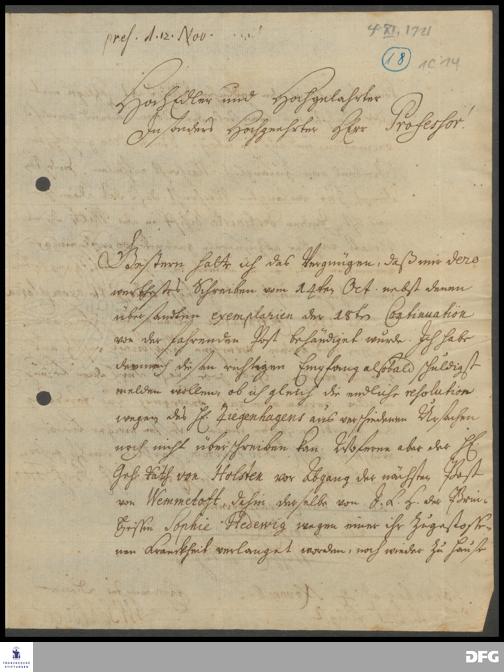 pres. d. 12. Nov.
4 XI. 1721
18
1C 14
HochEdler und Hochgelahrter
Insonders Hochgeehrter Herr Professor!
Gestern hatte ich das Vergnügen, daß mir dero
werthestes Schreiben vom 14ten Oct. nebst denen
übersandten exemplarien der 18ten Continuation
von der fahrenden Post behändiget wurde. Ich habe
demnach diesen richtigen Empfang alsobald schuldigst
melden wollen, ob ich gleich die endliche resolution
wegen des H. Ziegenhagens aus verschiedenen Ursachen
noch nicht überschreiben kan. Woferne aber der H.
Geh. Rath von Holsten vor Abgang der nächsten Post
von Wemmetofft, dahin derselbe von der Prin-
cessin Sophie Hedewig wegen einer ihr zugestoße-
nen Kranckheit verlanget worden, noch wieder zu Hause
FRANCKESCHE STIFTUNGEN
DFG